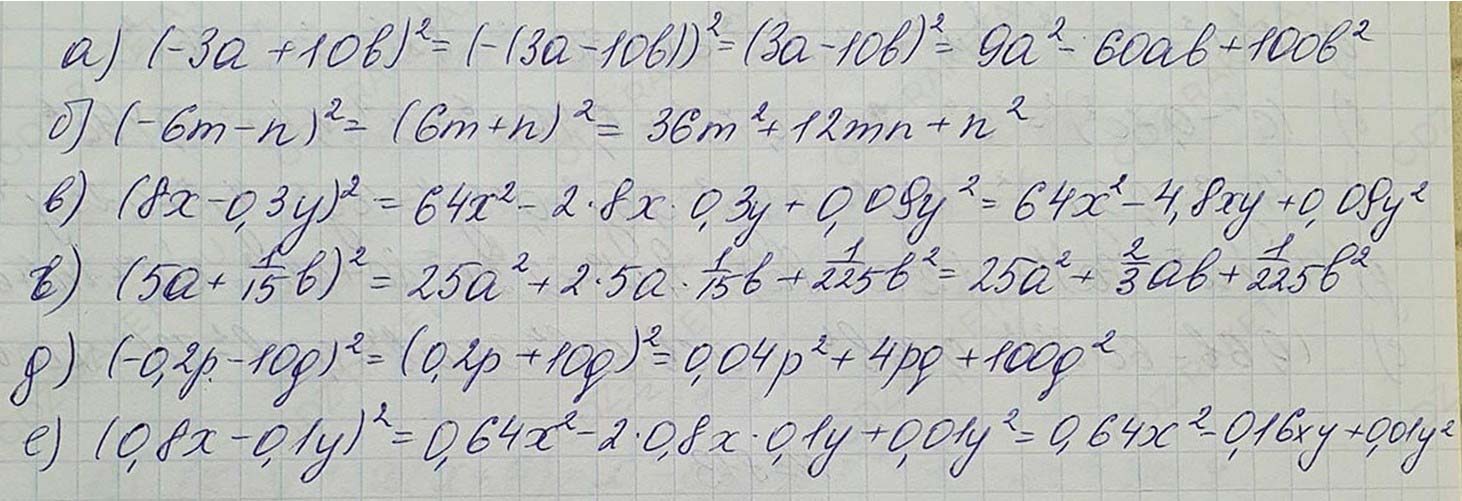 а) (-3a + 10b)² = (-(3a - 10b))² = (3a - 10b)² = 9a² - 60ab + 100b²
б) (-6m - n)² = (6m + n)² = 36m² + 12mn + n²
в) (8x - 0,3y)² = 64x² - 2·8x·0,3y + 0,09y² = 64x² - 4,8xy + 0,09y²
г) (5a + 1/15 b)² = 25a² + 2·5a·1/15 b + 1/225 b² = 25a² + 2/3 ab + 1/225 b²
д) (-0,2p - 10q)² = (0,2p + 10q)² = 0,04p² + 4pq + 100q²
е) (0,8x - 0,1y)² = 0,64x² - 2·0,8x·0,1y + 0,01y² = 0,64x² - 0,16xy + 0,01y²